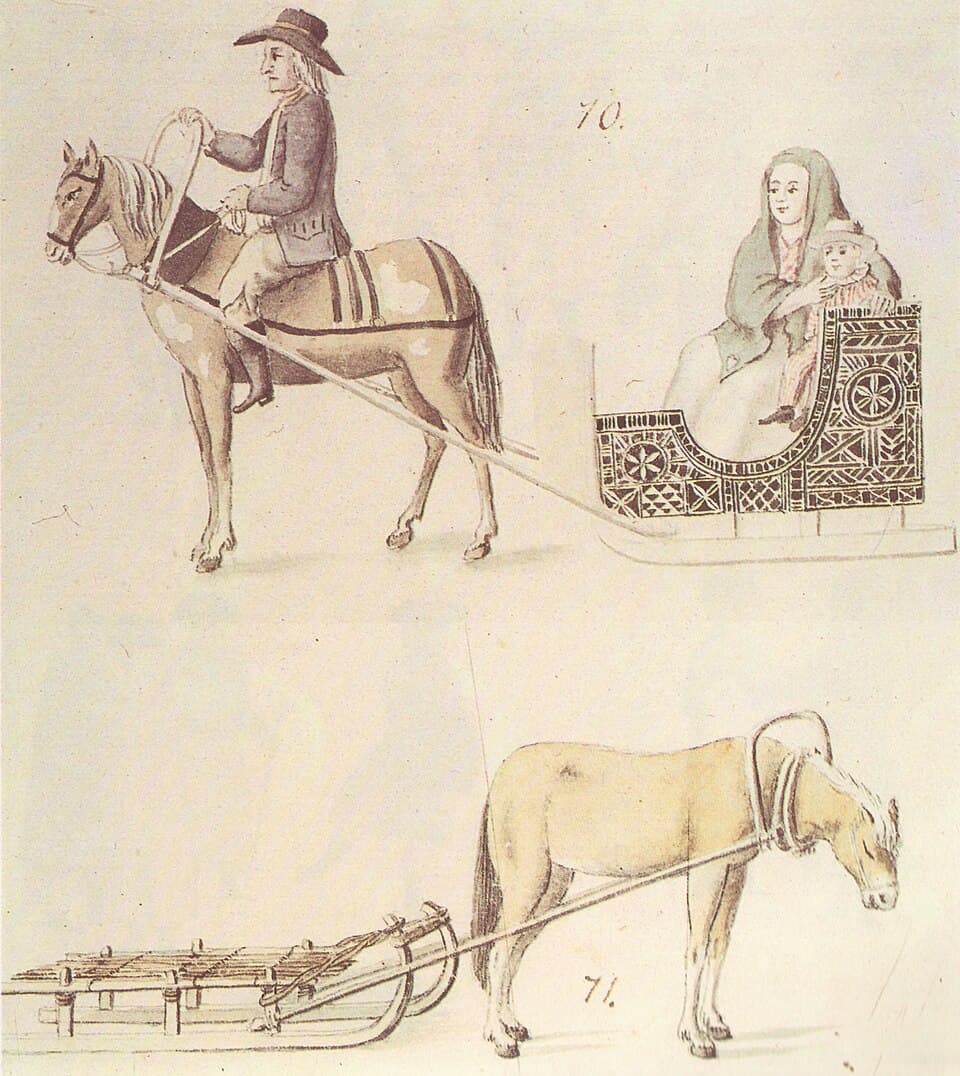 70.
71.